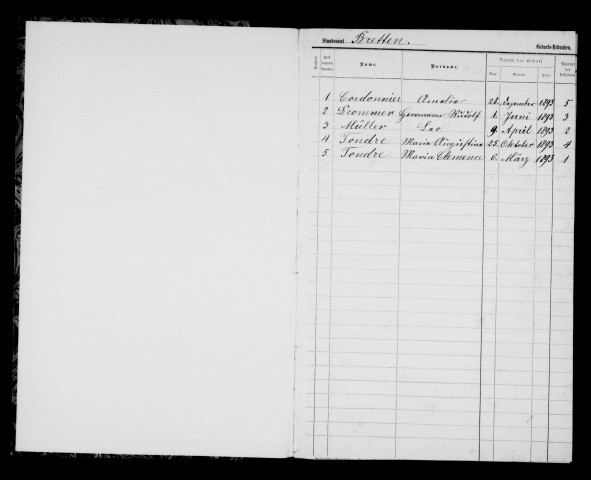 Standesamt Bretten. Geburts-Urkunden.
Name. Vorname. Datum der Geburt Nummer der Urkunde
Tag. Monat. Jahr
1 Cordonnier Amelie 28. Dezember 1893 5
2 Frommer Hermann Rudolf 1. Juni 1893 3
3 Müller Leo 9. April 1893 2
4 Tondre Maria Augustine 25. Oktober 1893 4
5 Tondre Maria Clemence 6. März 1893 1